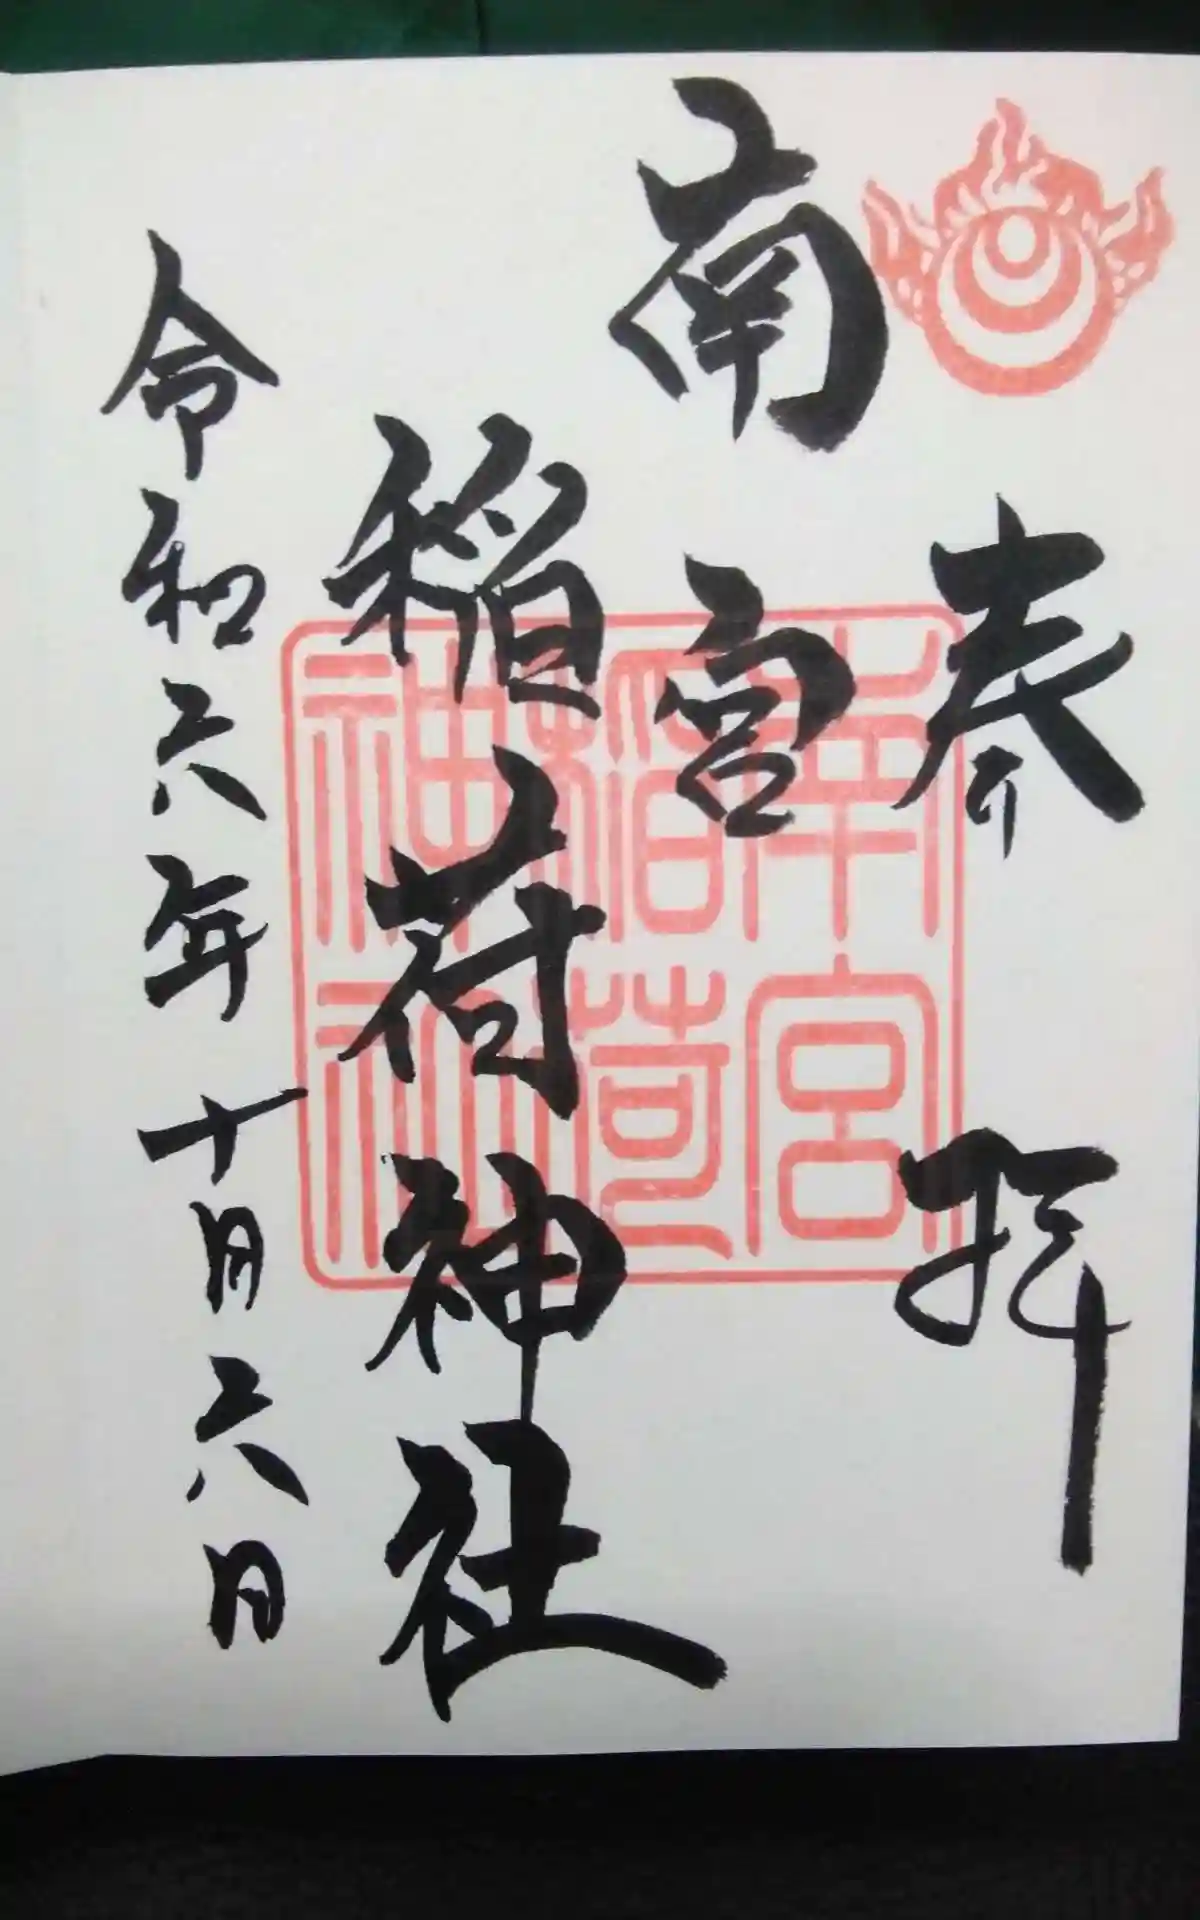 奉拝
南宮
稲荷神社
令和六年十月六日
南宮
稲荷
神社